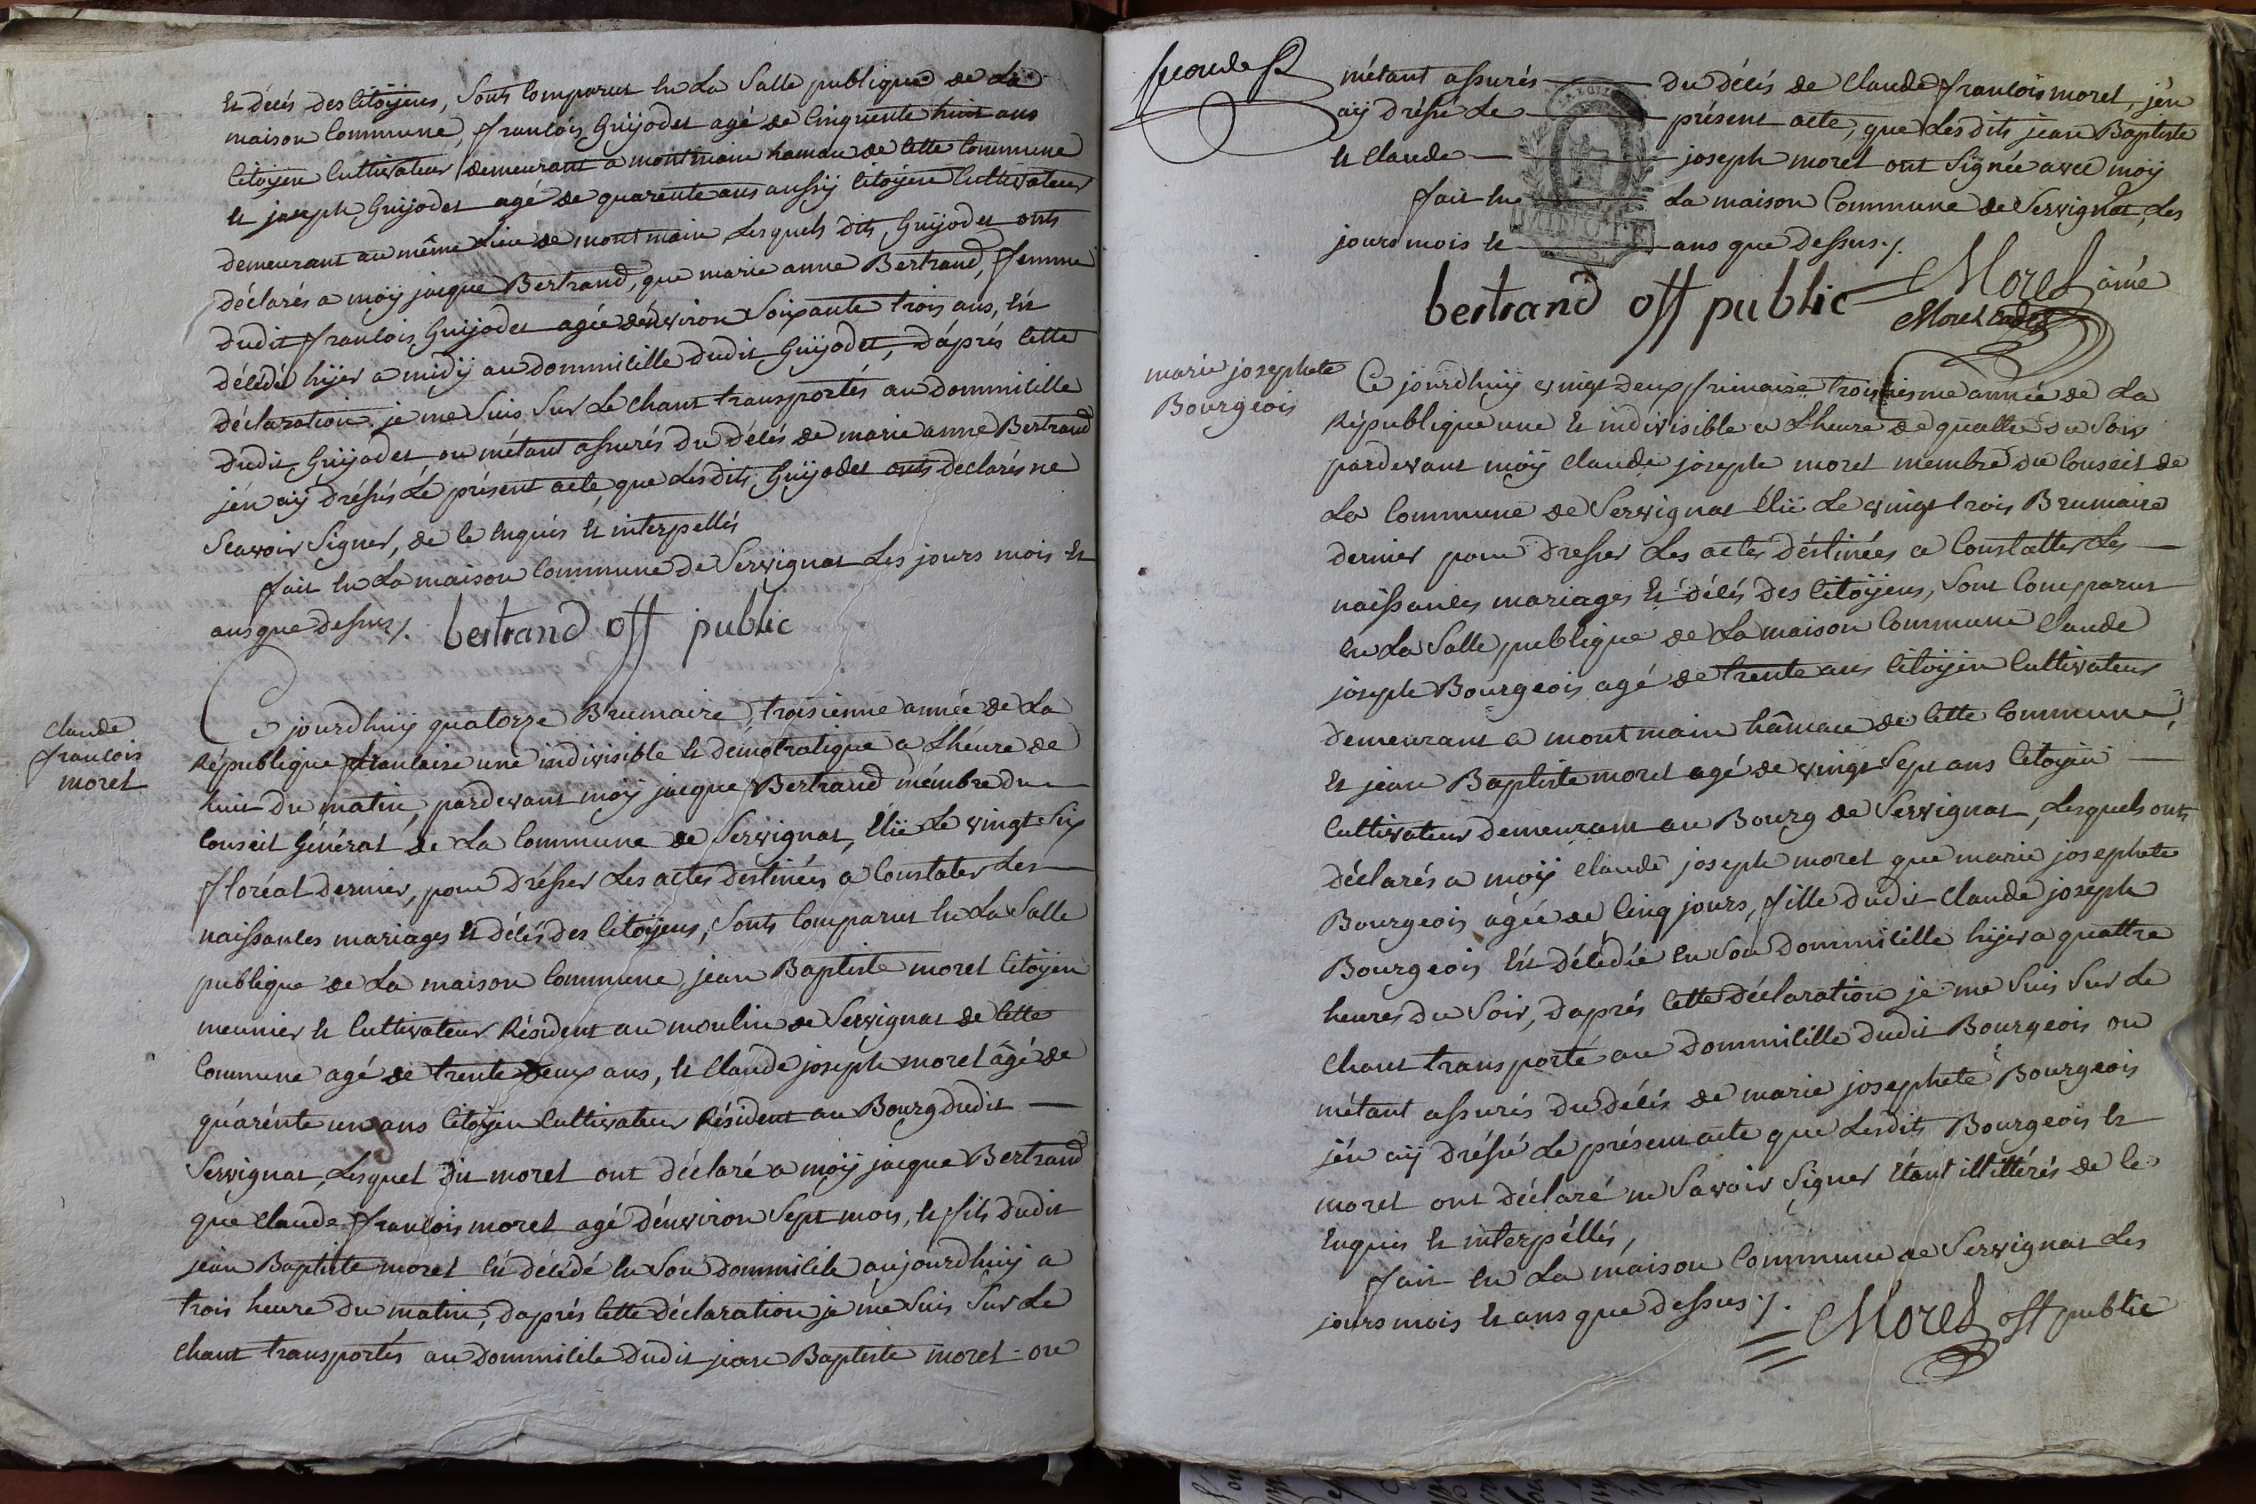 et décés des Citoÿens, Sont Comparut en La Salle publique de La
maison Commune, françois Guÿodet agé de Cinquente huit ans
Citoÿen Cultivateur demeurant a montmain hamau de Cette Commune
et joseph Guÿodet agé de quarente ans aussÿ Citoÿen Cultivateur
demeurant au même Lieu de montmain, Lesquels dits Guÿodet onts
déclarés a moÿ jacque Bertrand, que marie anne Bertrand, femme
dudit françois Guÿodet agée dénviron Soixante trois ans, est
décédé hÿer a midÿ au dommicille dudit Guÿodet, dáprés Cette
déclaration je me Suis Sur Le Chant transportés au dommicille
dudit Guÿodet ou métant assurés du décés de marie anne Bertrand
jén aÿ dréssés Lé présent acte, que Lesdits Guÿodet onts declarés ne
Scavoir Signer, de Ce enquis et interpellés
fait en La maison Commune de Servignat Les jours mois et
ans que dessus ⁒
bertrand off public
Claude
françois
morel
Ce jourdhuÿ quatorze Brumaire, troisienne année de La
République francaise une indivisible et démocratique a Lhéure de
huit du matin, pardevant moÿ jacque Bertrand mémbre du
Conseil Général de La Commune de Servignat, élu Le vingt Six
floréal dernier, pour dresser Les actes destinées a Constater Les
naissances mariages et décés des Citoÿens, Sonts Comparut en La Salle
publique de La maison Commune, jean Baptiste morel Citoÿen
meunier et Cultivateur Résident au moulin de Servignat de Cette
Commune agé de trente deux ans, et Claude joseph morel âgé de
quárénte un ans Citoÿen Cultivateur Résident au Bourg dudit
Servignat, Lesquel dit morel ont déclaré a moÿ jacque Bertrand
que Claude françois morel agé dénviron Sept mois, et fils dudit
jean Baptiste morel ést décédé en Son dommicile aujourdhuÿ a
trois heure du matin, daprés Cette déclaration je me Suis Sur Le
Chant transportés au dommicile dudit jean Baptiste morel ou
métant assurés du décés de Claude françois morel, jén
aÿ dréssé Le présent acte, que Lesdits jean Baptiste
et Claude joseph morel ont Signée avec moÿ
fait en La maison Commune de Servignat, Les
jours mois et ans que dessus ⁒
bertrand off public
Morel âiné
Morel
marie josephete
Bourgeois
Ce jourdhuÿ vingt deux frimaire troisiesme année de La
République une et indivisible a Lheure de quattre du Soir
pardevant moÿ Claude joseph morel membre du Conseil de
La Commune de Servignat élu Le vingt trois Brumaire
dernier pour dresser Les actes déstinées a Constatter Les
naissances mariages et décés des Citoÿens, Sont Comparut
en La Salle publique de La maison Commune Claude
joseph Bourgeois agé de trente ans Citoÿen Cultivateur
demeurant a montmain hâmau de Cette Commune,
et jean Baptiste morel agé de vingt Sept ans Citoÿen
Cultivateur demeurant au Bourg de Servignat, Lesquels ont
déclarés a moÿ Claude joseph morel que marie josephete
Bourgeois agée de Cinq jours, fille dudit Claude joseph
Bourgeois ést décédée en Son dommicille hÿer a quattre
heures du Soir, daprés Cette déclaration je me Suis Sur Le
Chant transporté au dommicille dudit Bourgeois ou
métant assurés du décés de marie josephete Bourgeois
jén aÿ dréssé Le présent acte que Lesdits Bourgeois et
morel ont déclaré ne Savoir Signer étant illittérés de Ce
enquis et interpéllés,
fait en La maison Commune de Servignat Les
jours mois et ans que dessus ⁒
Morel off public